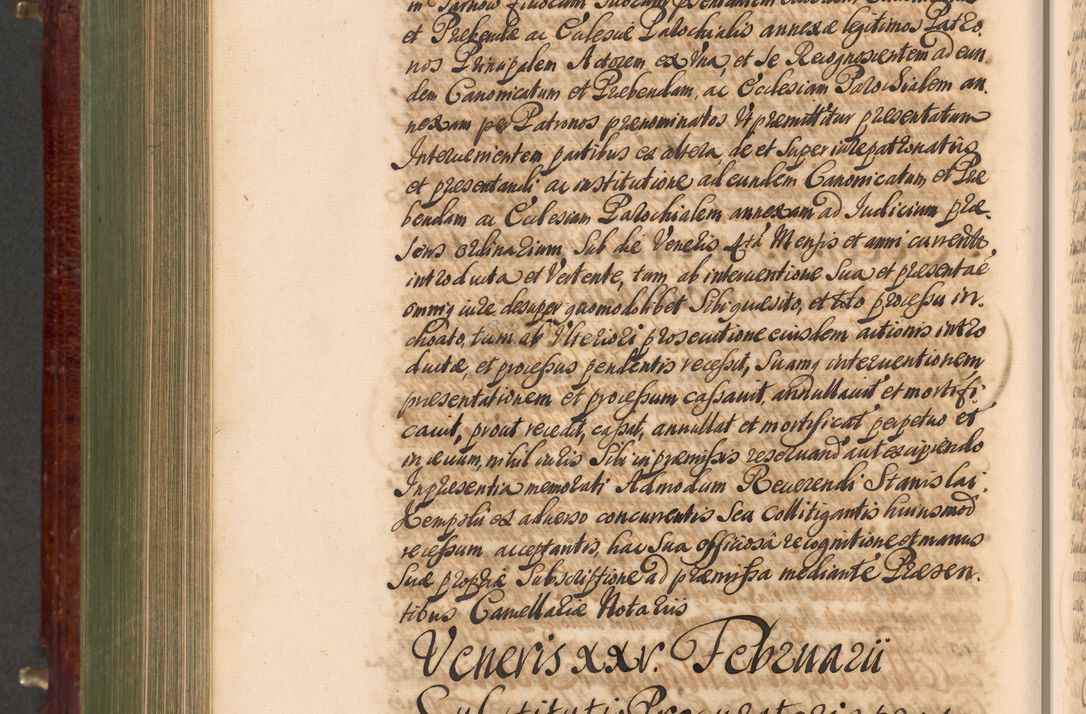 in Tarnow
et Prebendæ ac Ecclesiæ Parochialis annexæ legitimos Patro.
nos Principalem Actorem ex Vna, et se Recognoscentem ad eun
dem Canonicatum et Præbendam, ac Ecclesiam Parochialem an.
nexam per Patronos prænominatos Vt præmittitur præsentatum
Interuenientem partibus ex altera, de et super iure patronatûs
et præsentandi ac institutione ad eundem Canonicatum et Præ
bendam ac Ecclesiam Parochialem annexam ad Iudicium præ.
sens ordinarium, sub die Veneris 4tâ Mensis et anni currentis,
introducta et Vertente, tum ab interuentione sua et præsentae
omniq iure desuper quomodolibet sibi quæsito, et toto processu in.
choato, tum ab Vlteriori prosecutione eiusdem actionis intro
ductæ, et processus pendentis recessit, suamq interuentionem
præsentationem et processum cassauit, annullauit et mortifi
cauit, prout recedit, cassat, annullat et mortificat perpetuo et
in æuum, nihil iuris sibi in præmissis reseruand aut excipiendo
In præsentia memorati Admodum Reuerendi Stanislai.
Kempski ex aduerso concurrentis seu collitigantis huiusmod
recessum acceptantis, hac sua officiosâ recognitione et manus
suæ propriæ subscriptione ad præmissa mediante Præsen.
tibus Cancellariæ Notariis
Veneris xxv. Februarii
Substitutio Procuratoris